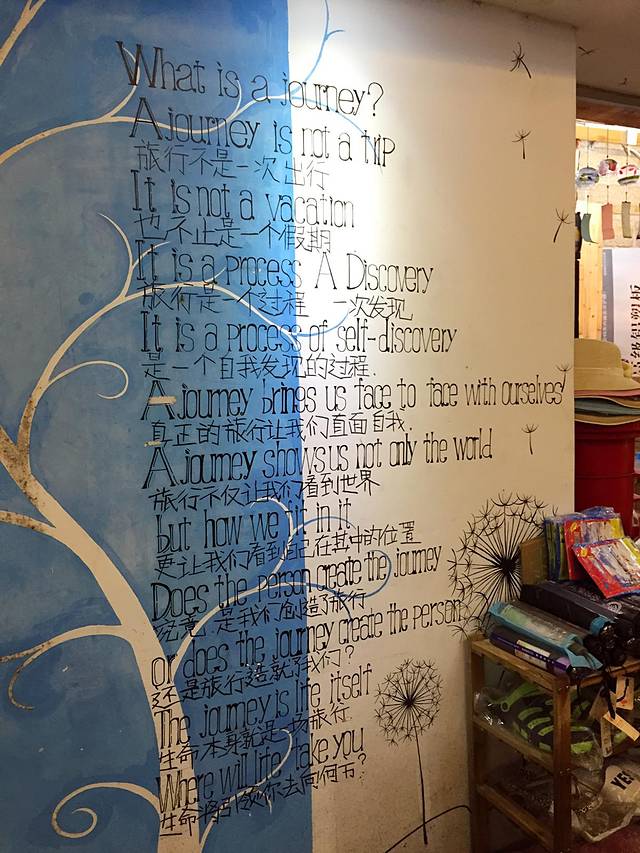 What is a journey?
A journey is not a trip
旅行不是一次出行
It is not a vacation
也不止是一个假期
It is a process A Discovery
旅行是一个过程 一次发现
It is a process of self-discovery
是一个自我发现的过程.
A journey brings us face to face with ourselves
真正的旅行让我们直面自我.
A journey shows us not only the world
旅行不仅让我们看到世界
but how we it in it
更让我们看到自己在其中的位置
Does the person create the journey
究竟是我们创造了旅行
or does the journey create the person
还是旅行造就了我们?
The journey is life itself
生命本身就是一场旅行
Where will life take you
生命将引领你去向何方?
YE